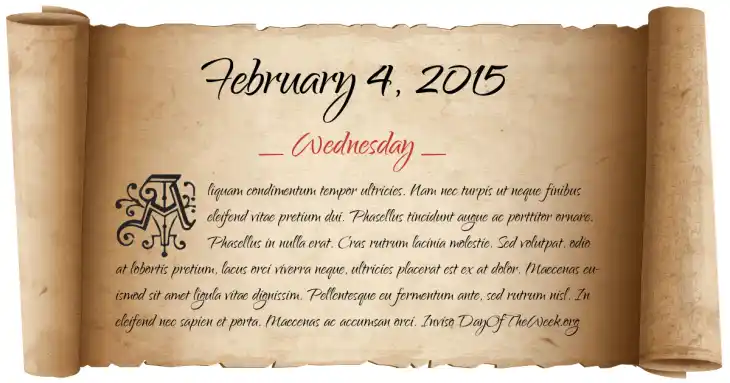 February 4, 2015
_ Wednesday _
Aliquam condimentum tempor ultricies. Nam nec turpis ut neque finibus
eleifend vitae pretium dui. Phasellus tincidunt augue ac porttitor ornare.
Phasellus in nulla erat. Cras rutrum lacinia molestie. Sed volutpat, odio
at lobortis pretium, lacus orci viverra neque, ultricies placerat est ex at dolor. Maecenas eu-
ismod sit amet ligula vitae dignissim. Pellentesque eu fermentum ante, sed rutrum nisl. In
eleifend nec sapien et porta. Maecenas ac accumsan orci. Invise DayOfTheWeek.org